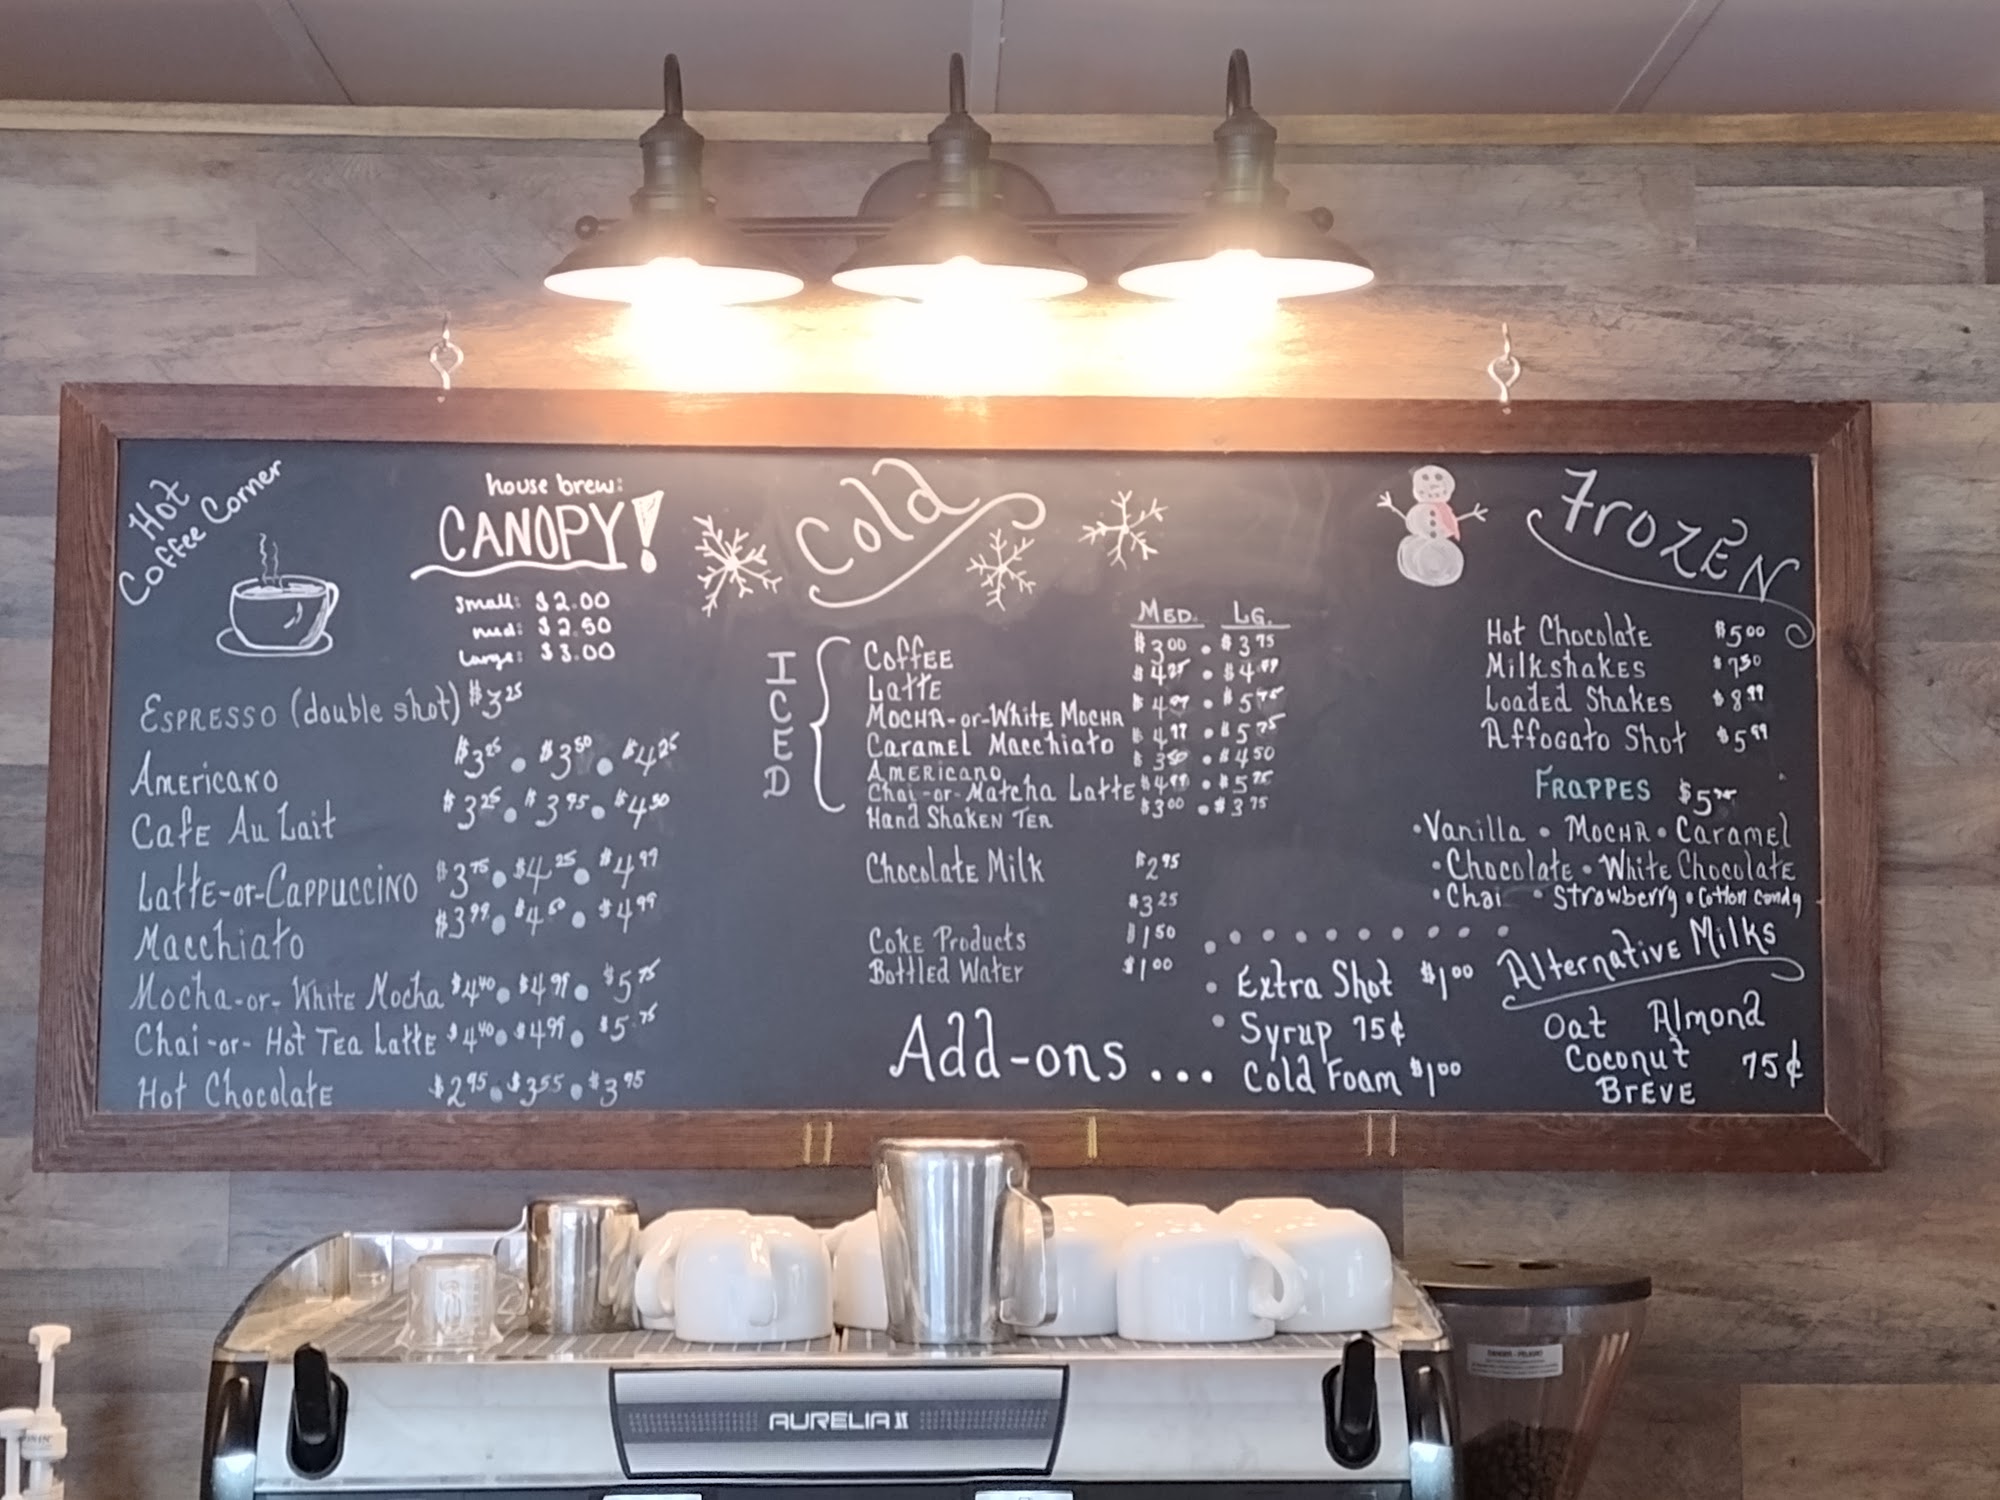 Hot
Coffee Corner
house brew:
CANOPY!
small: $2.00
med: $2.50
Large: $3.00
ESPRESSO (double shot) $3.25
AMERICANO $3.25 • $3.50 • $4.25
Cafe Au Lait $3.25 • $3.95 • $4.50
Latte-or-CAPPUCCINO $3.75 • $4.25 • $4.99
Macchiato $3.99 • $4.50 • $4.99
Mocha-or-White Mocha $4.40 • $4.99 • $5.75
Chai-or-Hot Tea Latte $4.40 • $4.99 • $5.75
Hot Chocolate $2.95 • $3.55 • $3.95
Cold
MED. LG.
ICED
Coffee $3.00 • $3.75
Latte $4.25 • $4.99
Mocha-or-White Mocha $4.99 • $5.75
Caramel Macchiato $4.99 • $5.75
Americano $3.50 • $4.50
Chai-or-Matcha Latte $4.99 • $5.75
Hand Shaken Tea $3.00 • $3.75
Chocolate Milk $2.95
$3.25
Coke Products $1.50
Bottled Water $1.00
Add-ons...
• Extra Shot $1.00
• Syrup 75¢
Cold Foam $1.00
Frozen
Hot Chocolate $5.00
Milkshakes $7.50
Loaded Shakes $8.99
Affogato Shot $5.99
FRAPPES $5.75
• Vanilla • Mocha • Caramel
• Chocolate • White Chocolate
• Chai • Strawberry • Cotton Candy
Alternative Milks
Oat Almond
Coconut 75¢
BREVE
AURELIA II
DANGER - PELIGRO